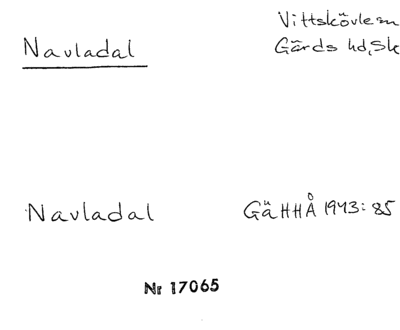 Navladal
Vittskövle sn
Gärds hd, Sk
Navladal
GäHHÅ 1943: 85
Nr 17065